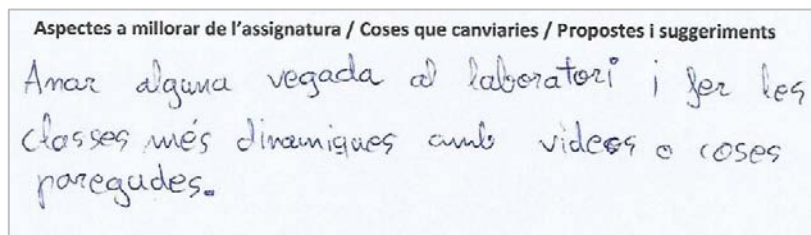 Aspectes a millorar de l'assignatura / Coses que canviaries / Propostes i suggeriments
Anar alguna vegada al laboratori i fer les
classes més dinamiques amb videos o coses
paregudes.